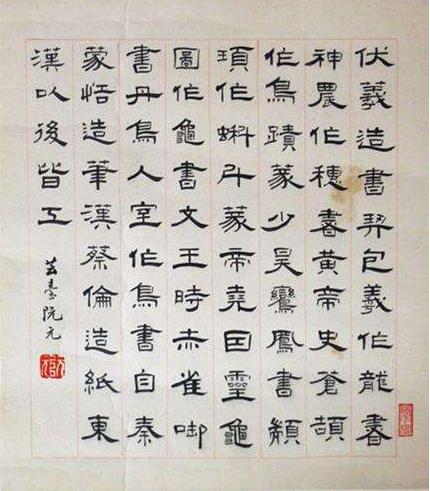 伏羲造書契包羲作龍書
神農作穗書黃帝史蒼頡
作鳥蹟篆少昊鸞鳳書顓
頊作蝌斗篆帝堯因靈龜
圖作龜書文王時赤雀啣
書丹鳥人室作鳥書自秦
蒙恬造筆漢蔡倫造紙東
漢以後皆工
芸臺阮元